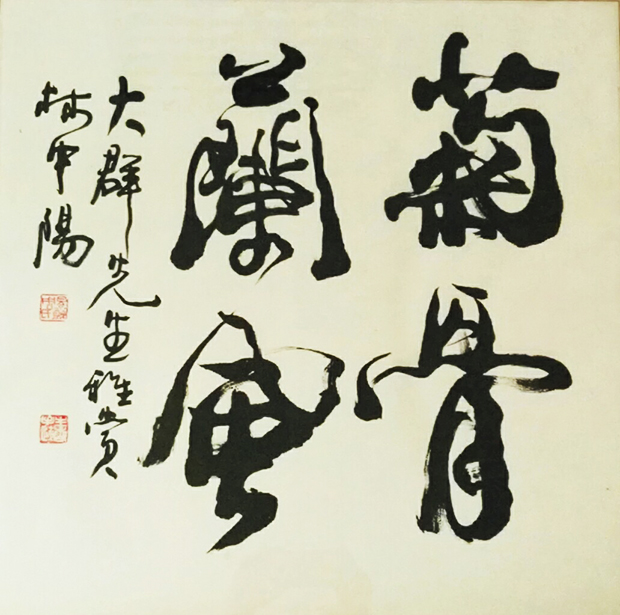 菊骨
蘭風
大群先生雅賞
林中陽